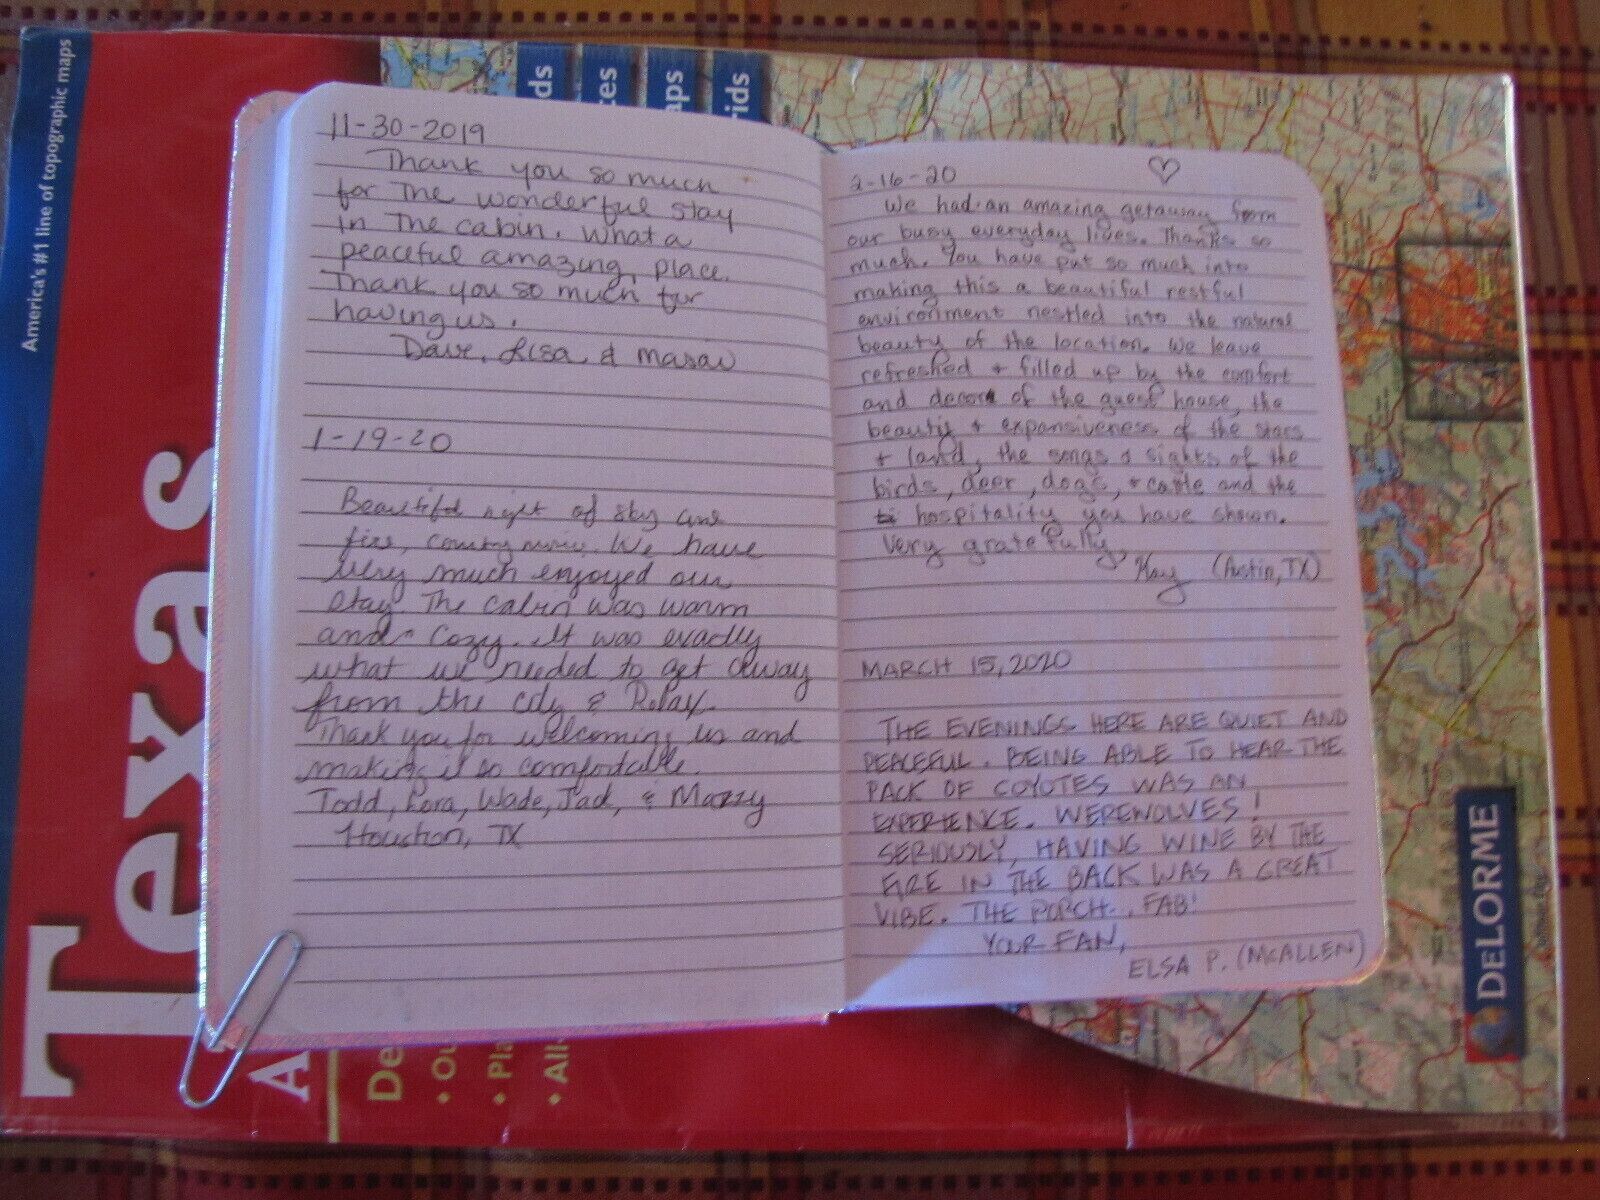 America's #1 line of topographic maps
Texas
A
De
• Ou
• Pla
• All-
ds
tes
aps
rids
DELORME
11-30-2019
Thank you so much
for The wonderful stay
in The cabin. What a
peaceful amazing, place.
Thank you so much for
having us.
Dave, Lisa, &
1-19-20
Beautiful night of sky and
fire, country music. We have
very much enjoyed our
stay. The cabin was warm
and cozy. It was exactly
what we needed to get away
from the city & Relax.
Thank you for welcoming us and
making it so comfortable.
Todd, Lora, Wade, Jad, & Mazzy
Houston, TX
2-16-20
We had an amazing getaway from
our busy everyday lives. Thanks so
much. You have put so much into
making this a beautiful restful
environment nestled into the natural
beauty of the location. We leave
refreshed + filled up by the comfort
and decor of the guest house, the
beauty + expansiveness of the stars
+ land, the songs & sights of the
birds, deer, dogs, + cattle and the
hospitality you have shown.
Very gratefully,
Kay (Austin, TX)
MARCH 15, 2020
THE EVENINGS HERE ARE QUIET AND
PEACEFUL. BEING ABLE TO HEAR THE
PACK OF COYOTES WAS AN
EXPERIENCE. WEREWOLVES!
SERIOUSLY, HAVING WINE BY THE
FIRE IN THE BACK WAS A GREAT
VIBE. THE PORCH.. FAB!
YOUR FAN,
ELSA P. (McALLEN)